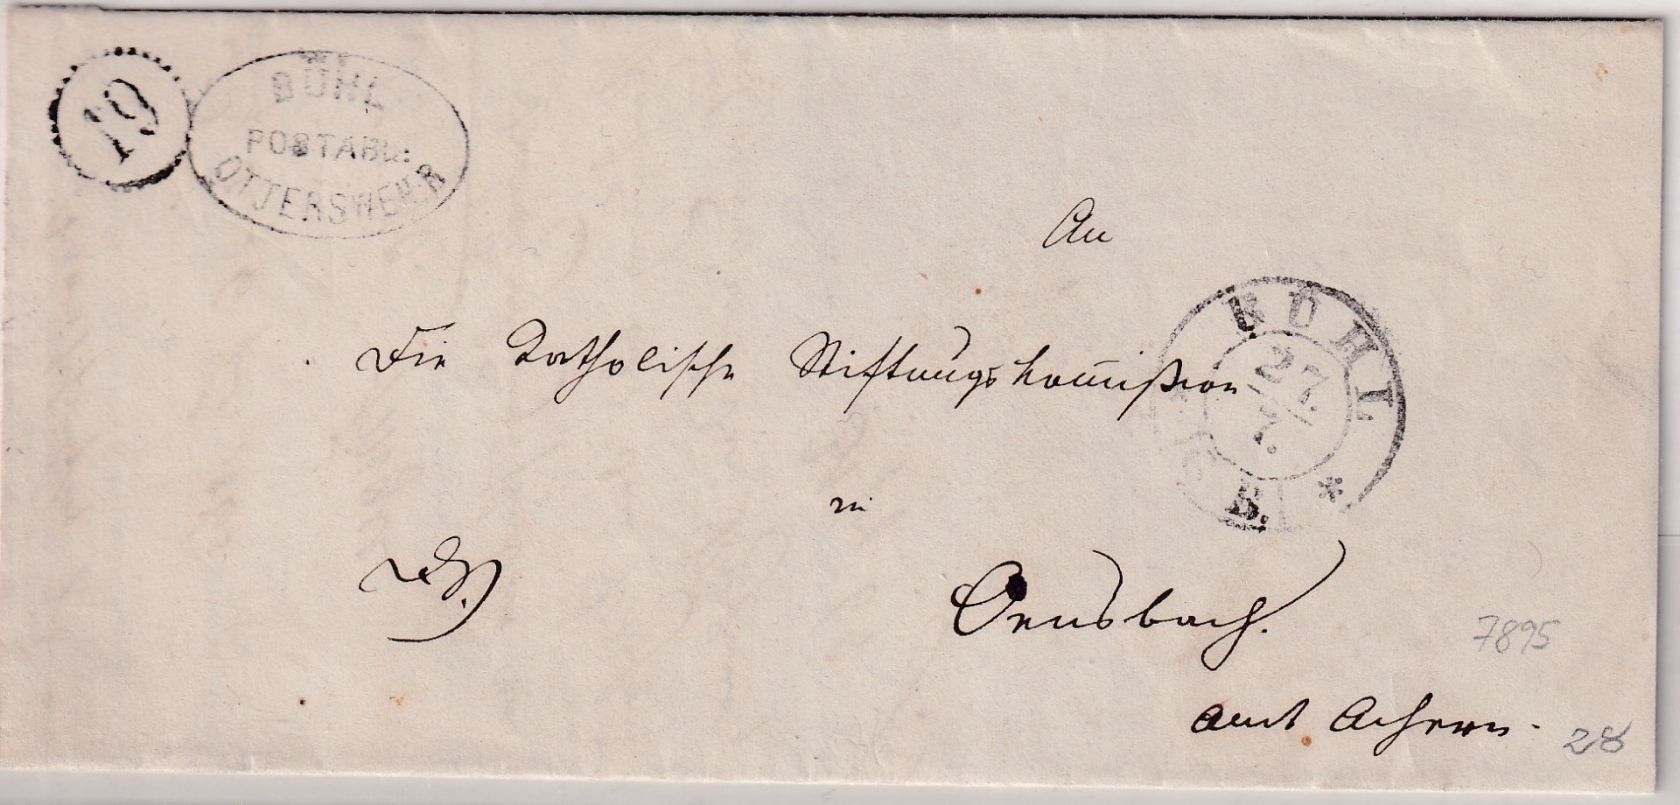 19
BÜHL
POSTABL:
OTTERSWEIER
An
Die Katholische Stiftungskommission
BÜHL
27.
7.
* B.
in
Oensbach.
Amt Achern.
7895
28